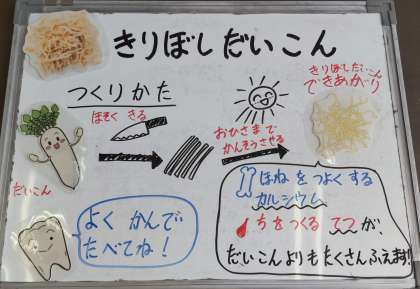 きりぼしだいこん
つくりかた
ほそく きる
だいこん
おひさまで
かんそうさせる
きりぼしだいこん
できあがり
よく かんで
たべてね！
ほねを つよくする
カルシウム
ちをつくる てつが、
だいこんよりも たくさんふえます!!